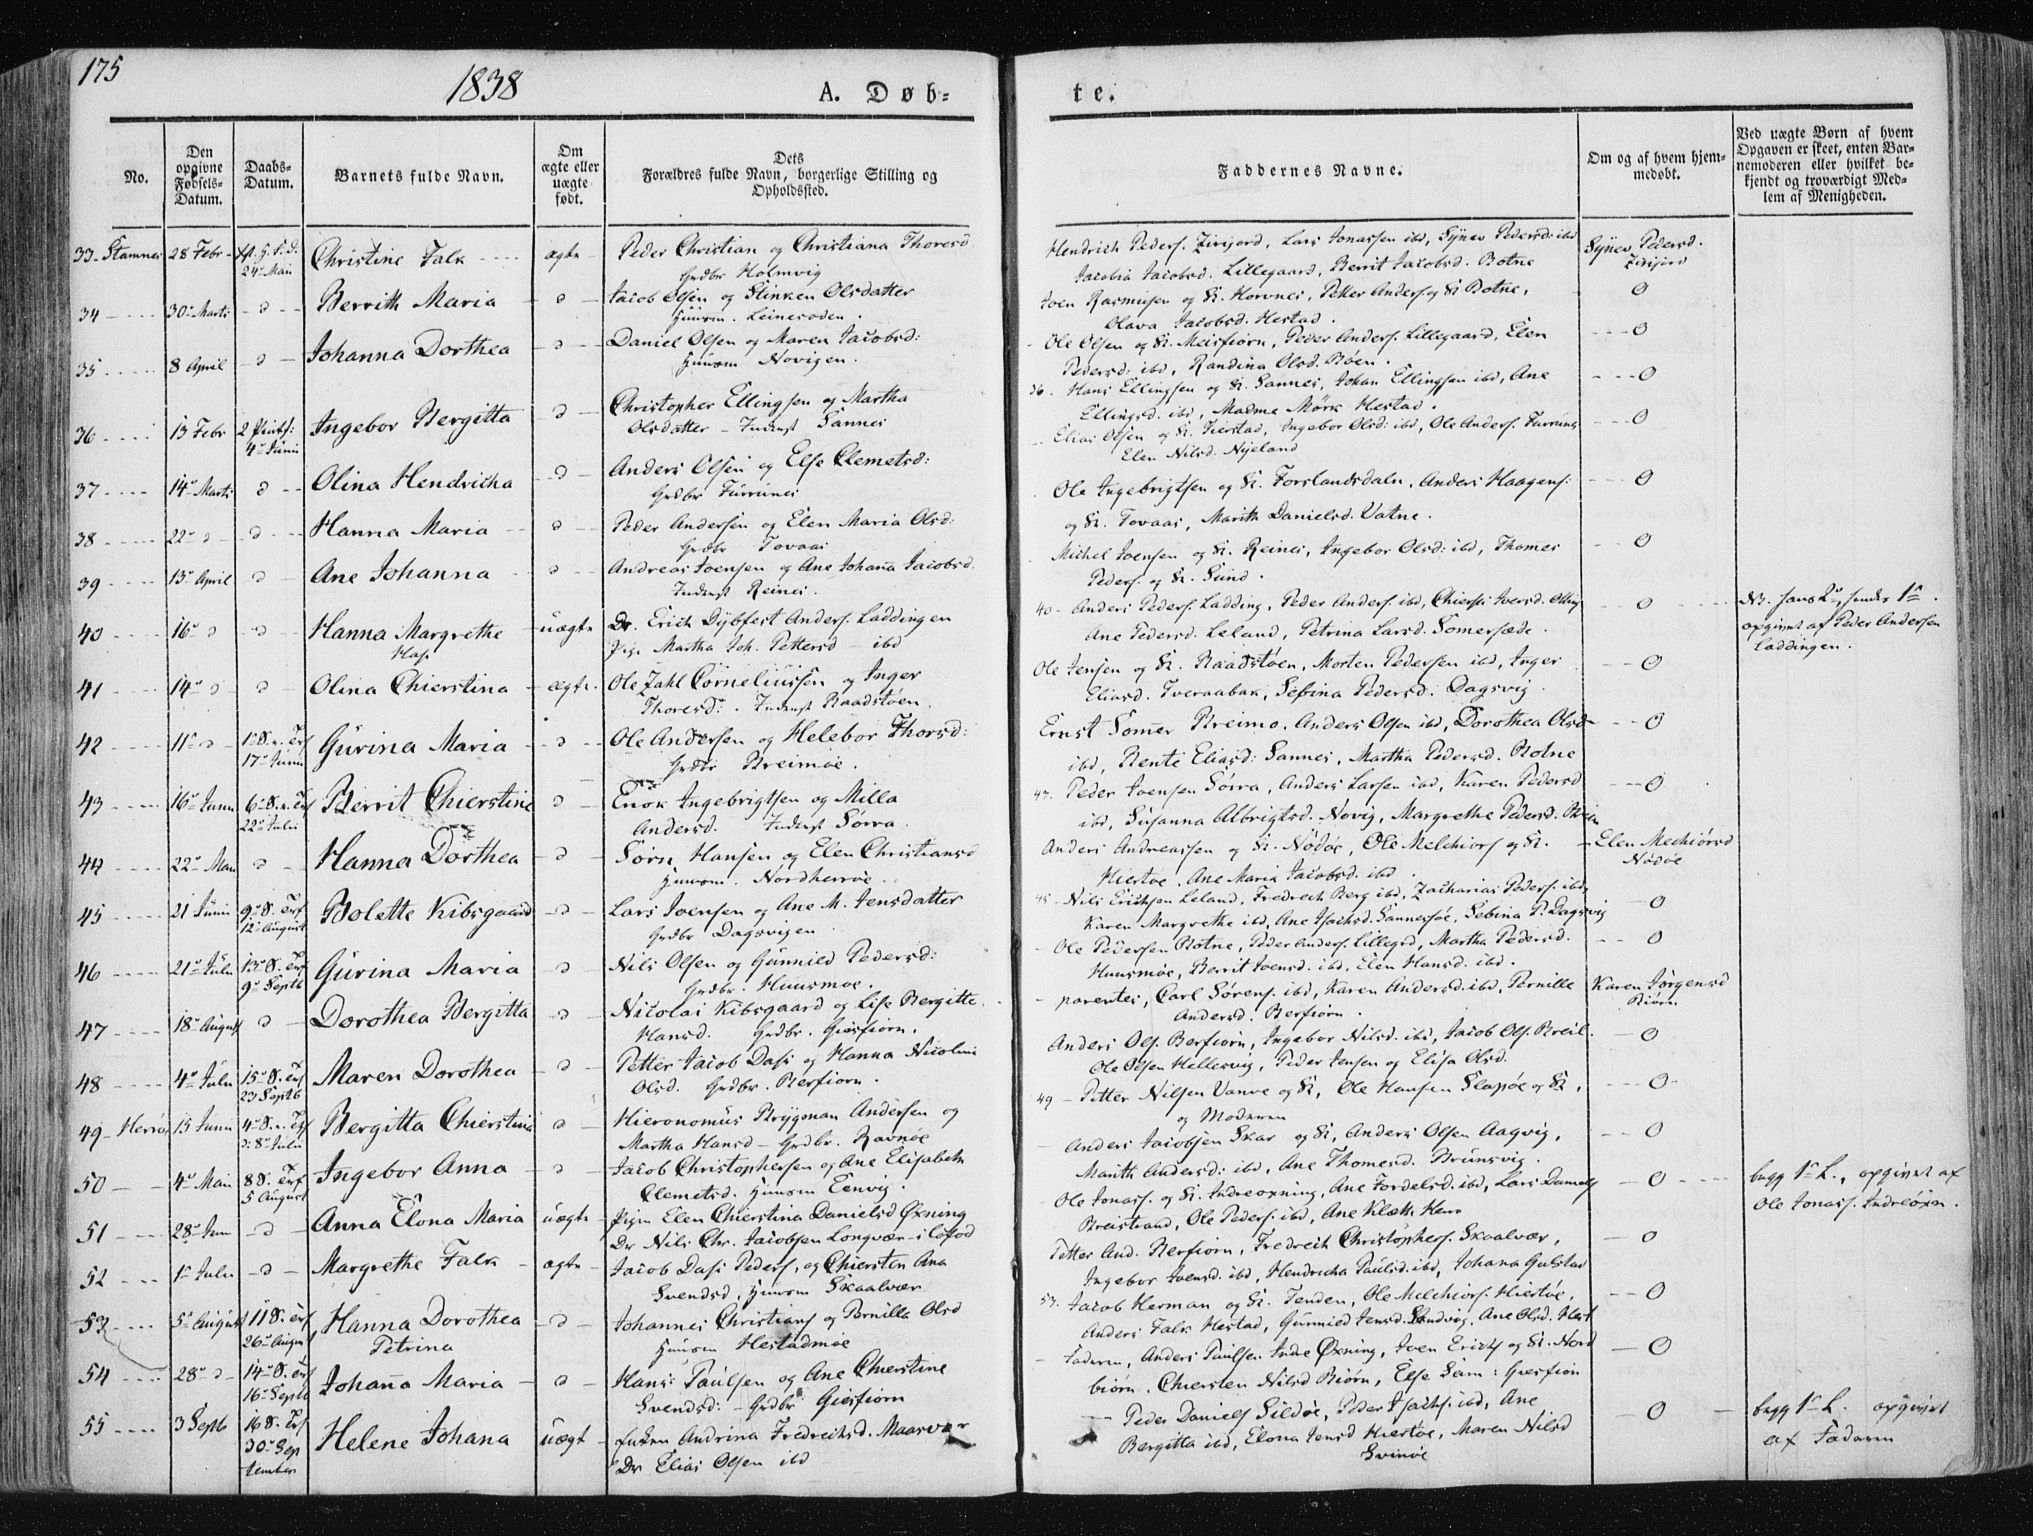 175
1838
A. Døb-
te.
No.
Den opgivne Fødsels-Datum.
Daabs-Datum.
Barnets fulde Navn.
Om ægte eller uægte født.
Dets Forældres fulde Navn, borgerlige Stilling og Opholdssted.
Faddernes Navne.
Om og af hvem hjem-medøbt.
Ved uægte Børn af hvem Opgaven er skeet, enten Bar-nemoderen eller hvilket be-kjendt og troværdigt Med-lem af Menigheden.
33 - Stamnes 28 Febr 24 Mai Christine Falk ægte Peder Christian og Christiana Thoresd
Grdbr Holmvig
Hendrich Peders. Zirijord, Lars Jonassen ibd, Synev Pedersd: ibd
Jacobia Jacobsd. Lillegaard, Berrit Jacobsd. Botne
Synev Pedersd. Zirijord
34 30 Marts d Berrith Maria d Jacob Olsen og Stinken Olsdatter
Huusm. Leinesoden.
Joen Rasmusen og K. Horvnes, Petter Anders. og K Botne,
Olava Jacobsd. Hestad.
0
35 8 April d Johanna Dorthea d Daniel Olsen og Maren Jacobsd:
Huusm Novigen.
Ole Olsen og K. Meisfiorn, Peder Anders. Lillegaard, Elen
Pedersd: ibd, Randina Olsd. Böen.
0
36 13 Febr 2 Pintsd: 4 Junii Ingebor Bergitta d Christopher Ellingsen og Martha
Olsdatter - Inderst Sannes
36. Hans Ellingsen og K. Sannes, Johan Ellingsen ibd, Ane
Ellingsd. ibd, Madme Mörk Hestad.
0
37 14 Marts d Olina Hendricha d Anders Olsen og Else Clemetsd:
Grdbr Furrunes
Elias Olsen og K. Tierstad, Ingebor Olsd: ibd, Ole Anders. Furrunes
Elen Nilsd. Nyeland
0
38 22 d d Hanna Maria d Peder Andersen og Elen Maria Olsd:
Grdbr Tovaas
Ole Ingebrigtsen og K. Forslandsdaln, Anders Haagens:
og K. Tovaas, Marith Danielsd. Vatne.
0
39 13 April d Ane Johanna d Andreas Joensen og Ane Johanna Jacobsd.
Inderst Reines.
Michel Joensen og K. Reines, Ingebor Olsd: ibd, Thomes
Peders. og K. Sund.
0
40 16 d d Hanna Margrethe uægte Dr. Erich Dybfest Anders. Laddingen
Pige Martha Joh. Pettersd - ibd
40 - Anders Peders. Ladding, Peder Anders. ibd, Chiersti Iversd.
Ane Pedersd. Leland, Petrina Larsd. Somersæde.
0
NB. hans L, hendes 1ste.
opgivet af Peder Andersen
Laddingen.
41 14 d d Olina Chierstina ægte. Ole Zahl Corneliussen og Inger
Thoresd: . Inderst Raadstöen
Ole Jensen og K. Raadstöen, Morten Pedersen ibd, Inger
Eliasd. Tveraabak, Sebina Pedersd. Dagsvig.
0
42 11 d 17 Junii Gurina Maria d Ole Andersen og Helebor Thorsd:
Grdbr Breimoe.
Ernst Somer Breimo. Anders Olsen ibd, Dorothea Olsd
ibd, Bente Eliasd: Sannes, Martha Pedersd. Botne
0
43 16 Junii 22 Julii Berrit Chierstine d Enok Ingebrigtsen og Milla
Andersd. Inderst Sörra
Peder Joensen Sörra, Anders Larsen ibd, Karen Pedersd
ibd, Susanna Albrigtsd. Novig, Margrethe Pedersd.
0
44 22 Mai d Hanna Dorthea d Sörn Hansen og Elen Christiansd
Huusm. Nordherröe.
Anders Andreassen og K. Nödöe, Ole Melchiors og K.
Hiertöe. Ane Maria Jacobsd. ibd
Elen Mechiörsd Nödöe
45 21 Junii 12 August Bolette Kibsgaard d Lars Joensen og Ane M. Jensdatter
Grdbr Dagsvigen
45 - Nils Erichsen Leland, Fredrech Berg ibd, Zacharias Peders. ibd
Karen Margrethe ibd, Ane Isachsd. Sannessöe, Sebina P. Dagsvig
0
46 21 Julii 9 Septb Gurina Maria d Nils Olsen og Gunnild Pedersd:
Grdbr. Huusmoe.
Ole Pedersen Botne, Peder Anders. Lillegrd, Martha Pedersd.
Huusmoe, Berrit Joensd. ibd, Elen Hansd. ibd.
0
47 18 August d Dorothea Bergitta d Nicolai Kibsgaard og Lise Bergitte
Hansd. Grdbr. Giesfiorn.
parentes, Carl Sörens. ibd, Karen Andersd. ibd, Pernille
Andersd. Berfiorn.
Karen Jörgensd Biörn
48 4 Julii 23 Septb Maren Dorothea d Petter Jacob Dass og Hanna Nicoline
Olsd. Grdbr. Berfiorn.
Anders Ols. Berfiorn, Ingebor Nilsd. ibd, Jacob Ols. Breil.
Ole Olsen Hellesvig, Peder Jensen og Elisa Olsd.
0
49 - Herrö 15 Junii 8 Julii Bergitta Chierstine d Hieronomüs Brygman Andersen og
Martha Hansd - Grdbr. Ravnöe
49 - Petter Nilsen Vanve og K, Ole Hansen Slapöe og K,
og Moderen
0
50 4 Mai 8 S. Trf 5 August Ingebor Anna d Jacob Christophersen og Ane Elisabeth
Clemetsd. Huusm Eenvig.
Anders Jacobsen Skar og K, Anders Olsen Aagvig,
Marith Andersd: ibd, Ane Thomesd. Brunsvig.
0
51 28 Juni d Anna Elona Maria uægte Pigen Elen Chierstina Danielsd Öxning
Dr Nils Chr. Jacobsen Longvær i Lofod
Ole Jonass. og K. Indreöxning, Ane Tordelsd. ibd, Lars Daniels
Breistrand, Ole Peders. ibd, Ane Klæth Herö
0
begg 1ste L., opgivet af
Ole Jonass. Indreöxn.
52 1 Julii d Margrethe Falk ægte Jacob Dass Peders, og Chiersten Ana
Svendsd, Huusm Skaalvær
Petter And. Berfiorn, Fredrech Christophers. Skaalvær,
Ingebor Joensd. ibd, Hendricha Paulsd. ibd, Johana Gulstad
0
53 5 August 11 S. Trf 26 August Hanna Dorothea
Petrina d Johannes Christians og Pernilla Olsd
Huusm Hestadmoe
53. Jacob Herman og K. Tenden, Ole Melchiors. Hiertöe,
Anders Falk Hestad, Gunnild Jensd. Sandvig, Ane Olsd. Hest
0
54 28 d 14 S. Trf 16 Septb Johanna Maria d Hans Paulsen og Ane Chierstine
Svendsd: - Grdbr Giesfiorn
Faderen, Anders Paulsen Indre Öxning, Iven Erichs og K. Nord
biörn. Chiersten Nilsd Biörn, Else Sam: Giesfion
0
55 3 Septb 16 S. Trf 30 September Helene Johana uægt Enken Andrina Fredrechsd. Maasvær
Dr Elias Olsen ibd
Peder Daniels Sildöe, Peder Isachs. ibd, Ane
Bergitta ibd, Elona Jensd Hiertöe, Maren Nilsd
Svinöe
0
begg 1ste L. opgivet
af Faderen